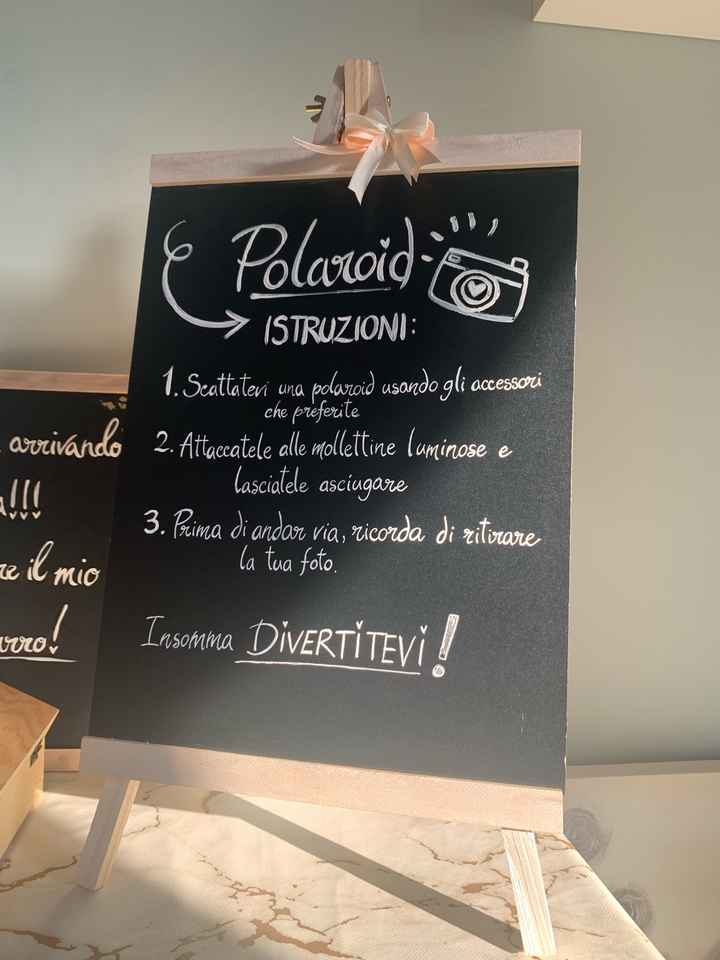 Polaroid
ISTRUZIONI:
1. Scattatevi una polaroid usando gli accessori
che preferite
2. Attaccatele alle mollettine luminose e
lasciatele asciugare
3. Prima di andar via, ricorda di ritirare
la tua foto.
Insomma DIVERTITEVI!
arrivando
!!!
il mio